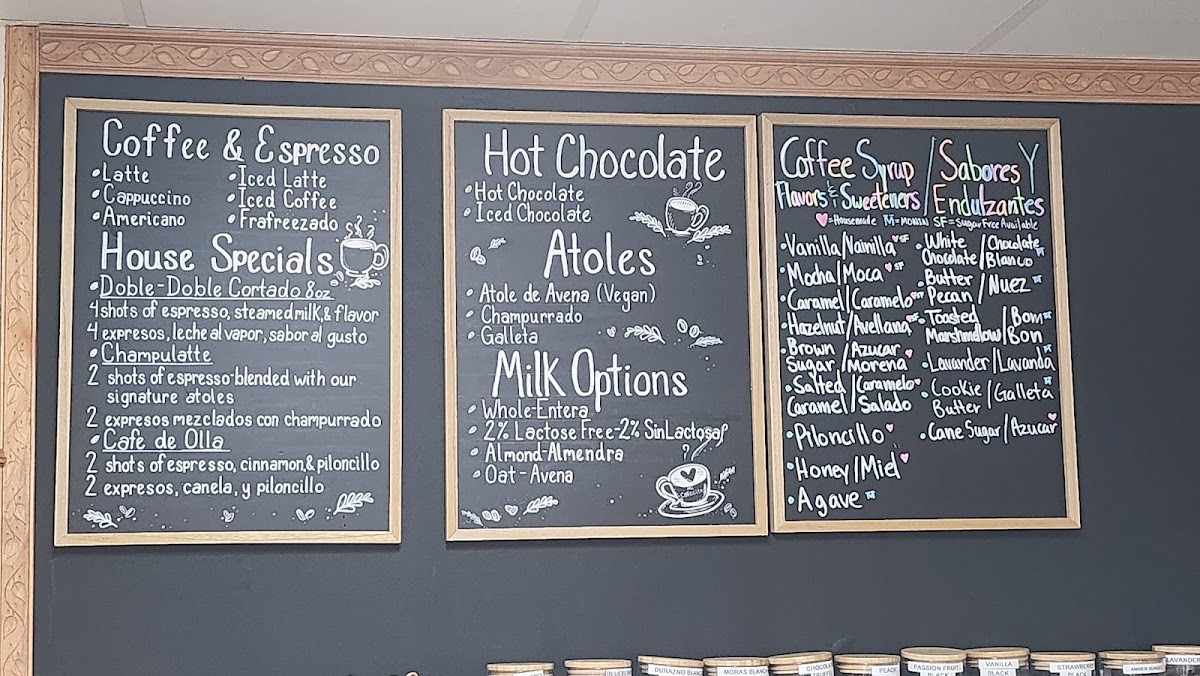 Coffee & Espresso
•Latte
•Cappuccino
•Americano
•Iced Latte
•Iced Coffee
•Frafreezado
House Specials
•Doble-Doble Cortado 8oz
4 shots of espresso, steamed milk, & flavor
4 expresos, leche al vapor, sabor al gusto
•Champulatte
2 shots of espresso blended with our
signature atoles
2 expresos mezclados con champurrado
•Cafè de Olla
2 shots of espresso, cinnamon, & piloncillo
2 expresos, canela, y piloncillo
Hot Chocolate
•Hot Chocolate
•Iced Chocolate
Atoles
•Atole de Avena (Vegan)
•Champurrado
•Galleta
Milk Options
•Whole-Entera
•2% Lactose Free-2% Sin Lactosa
•Almond-Almendra
•Oat-Avena
Coffee Syrup / Sabores Y
Flavors & Sweeteners / Endulzantes
♥=Housemade M=MONIN SF=Sugar Free Available
•Vanilla/Vainilla ♥SF
•Mocha/Moca ♥SF
•Caramel/Caramelo ♥SF
•Hazelnut/Avellana ♥SF
•Brown / Azucar
Sugar / Morena ♥
•Salted / Caramelo ♥
Caramel / Salado
•Piloncillo ♥
•Honey/Miel ♥
•Agave M
•White / Chocolate
Chocolate / Blanco M
•Butter / Nuez M
Pecan
•Toasted / Bom M
Marshmellow / Bon
•Lavander/Lavanda M
•Cookie / Galleta M
Butter
•Cane Sugar/Azucar ♥
DURAZNO BLANC
MORAS BLANC
CHOCOL
TRUFFL
PEACH
PASSION FRUIT
BLACK
VANILLA
BLACK
STRAWBERRY
BLACK
LAVANDER